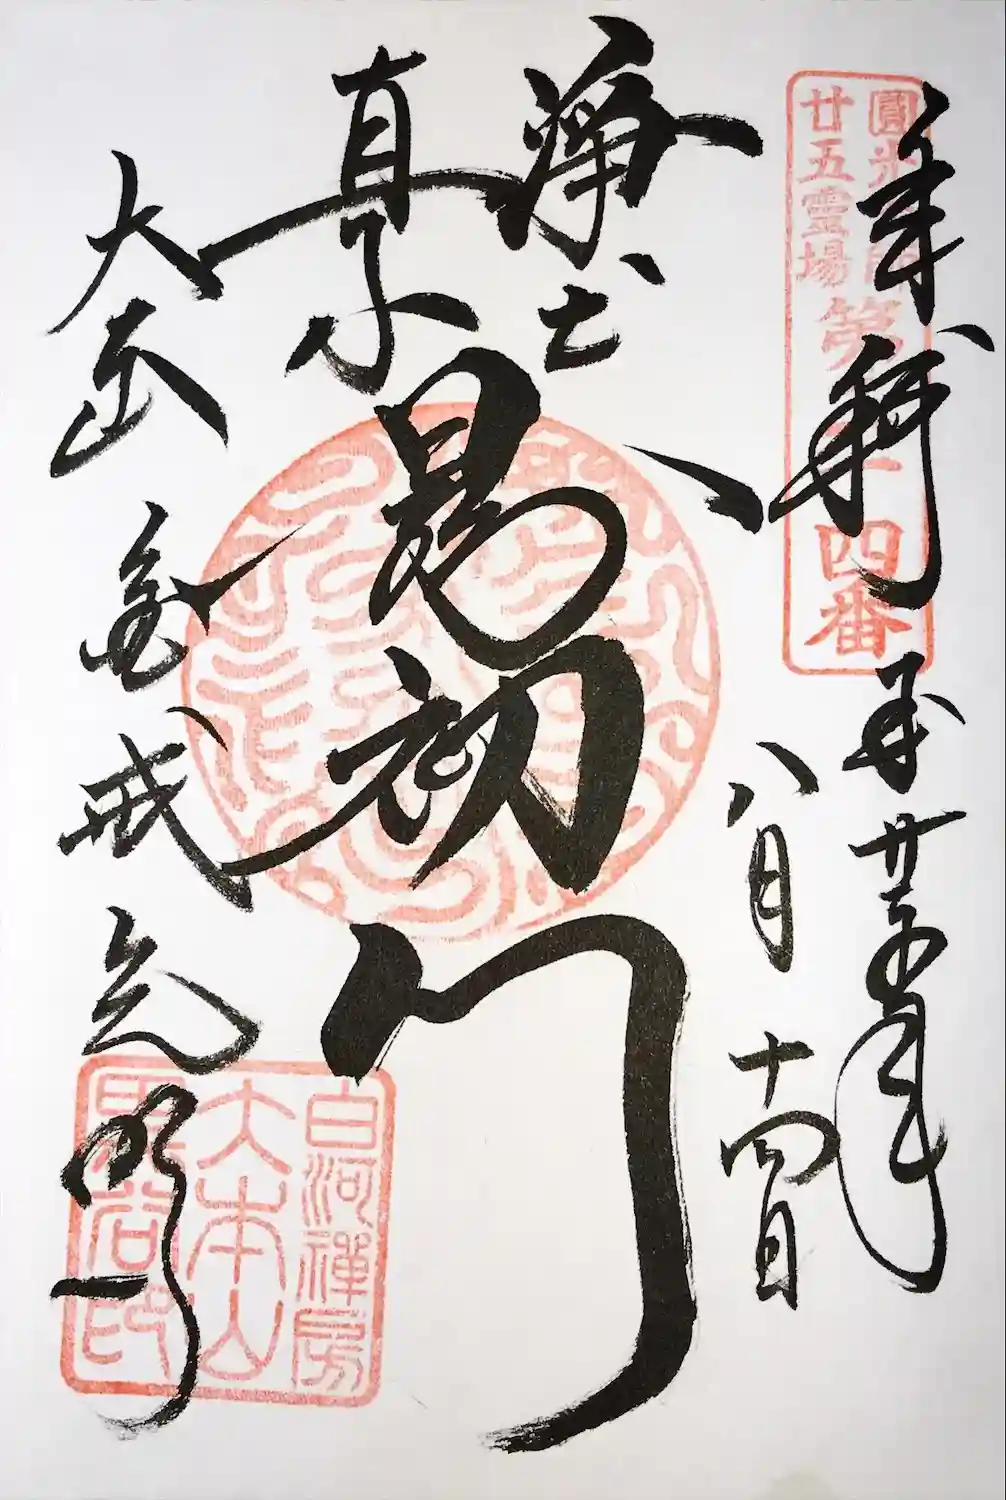 圓光大師
廿五靈場
第二十四番
奉拜
平廿五年
八月十四日
淨土
真宗
最初門
大本山
金戒光明寺
白河禪房
大本山
黒谷印